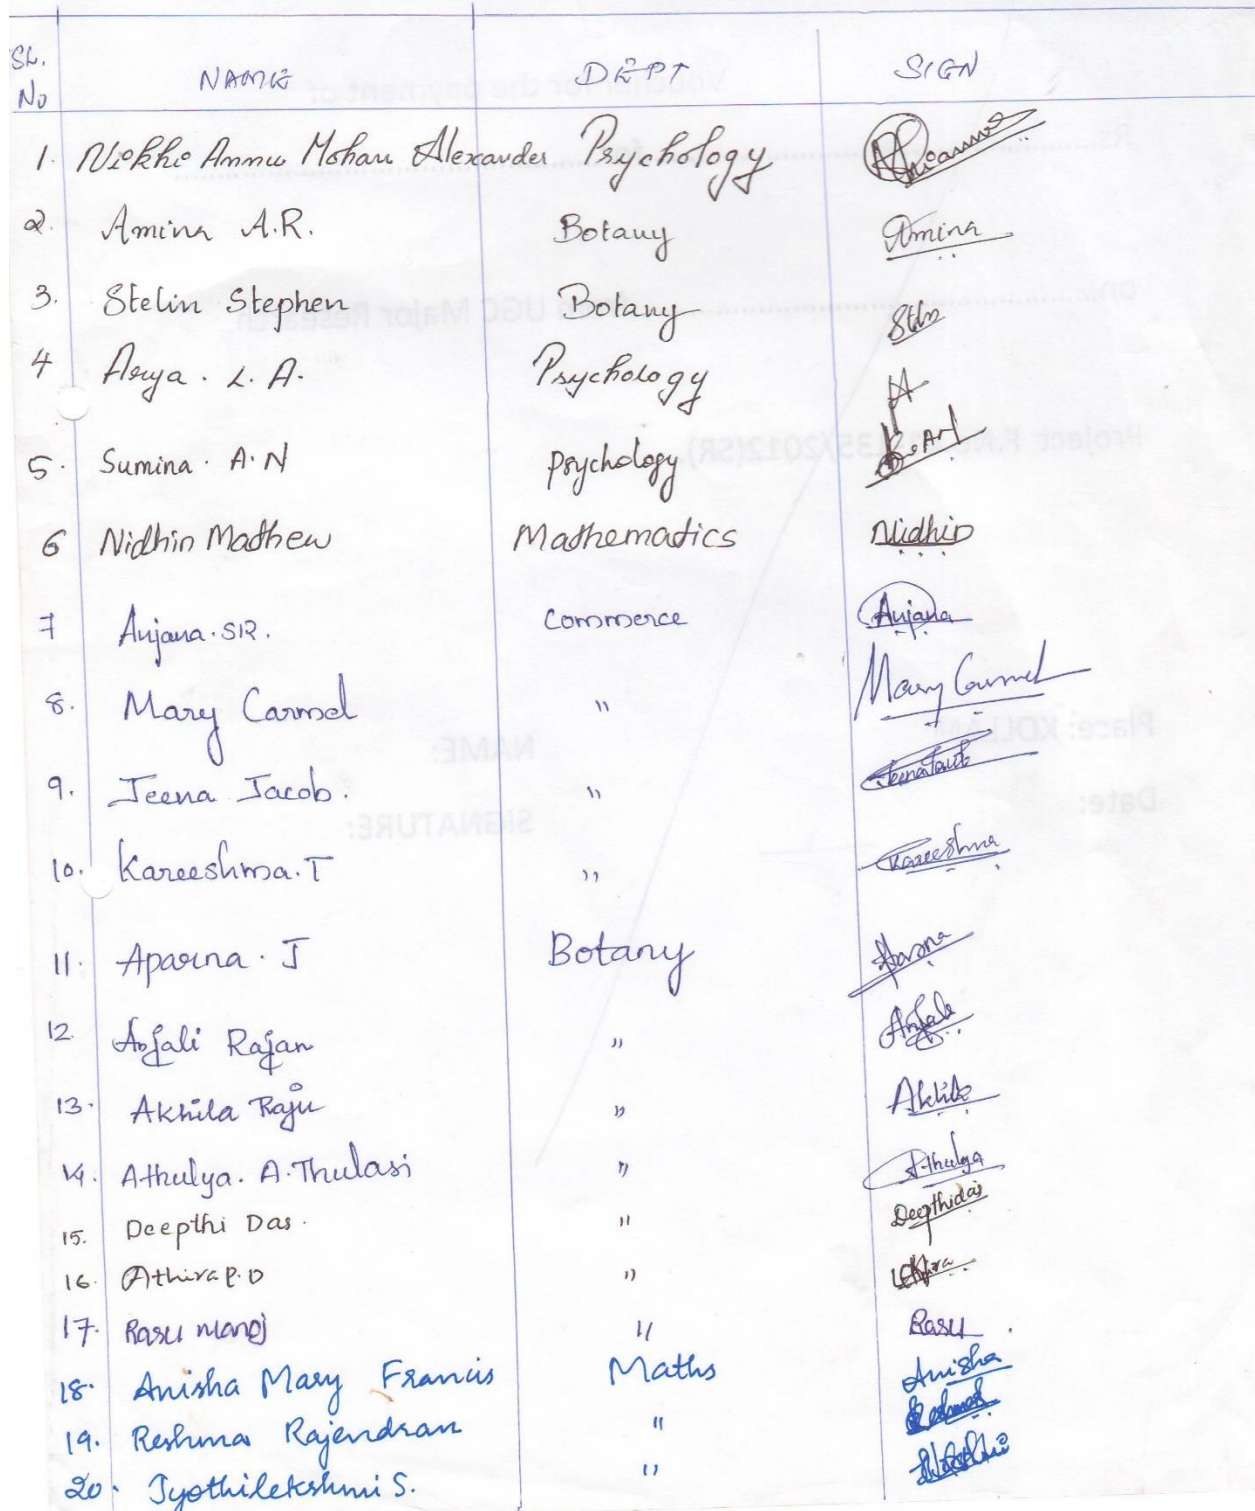 SL. No NAME DEPT SIGN
1. Annu Mohan Alexander Psychology
2. Amina A.R. Botany Amina
3. Stelin Stephen Botany
4 Arya. L. A. Psychology
5. Sumina. A.N Psychology
6 Nidhin Mathew Mathematics Nidhin
7 Anjana. S.R. Commerce Anjana
8. Mary Carmel " Mary Carmel
9. Jeena Jacob. " Jeena Jacob
10. Kareeshma. T " Kareeshma
11. Aparna. J Botany
12. Anjali Rajan " Anjali
13. Akhila Raju " Akhila
14. Athulya. A. Thulasi " Athulya
15. Deepthi Das. " Deepthidas
16. Athira P.O " Athira
17. Rasu Manoj " Rasu.
18. Anisha Mary Francis Maths Anisha
19. Reshma Rajendran " Reshma
20. Jyothilekshmi S. "